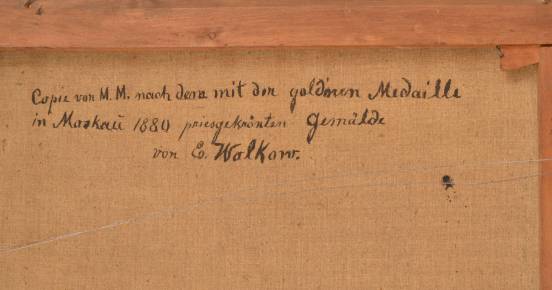 Copie von M. M. nach dem mit der gold'nen Medaille
in Moskau 1880 priesgekrönten Gemälde
von E. Wolkow.